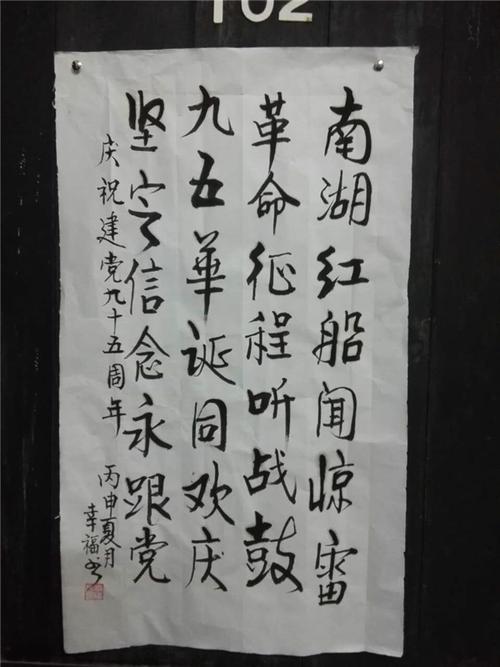 102
南湖红船闻惊雷
革命征程听战鼓
九五華诞同欢庆
坚定信念永跟党
庆祝建党九十五周年
丙申夏月
幸福书